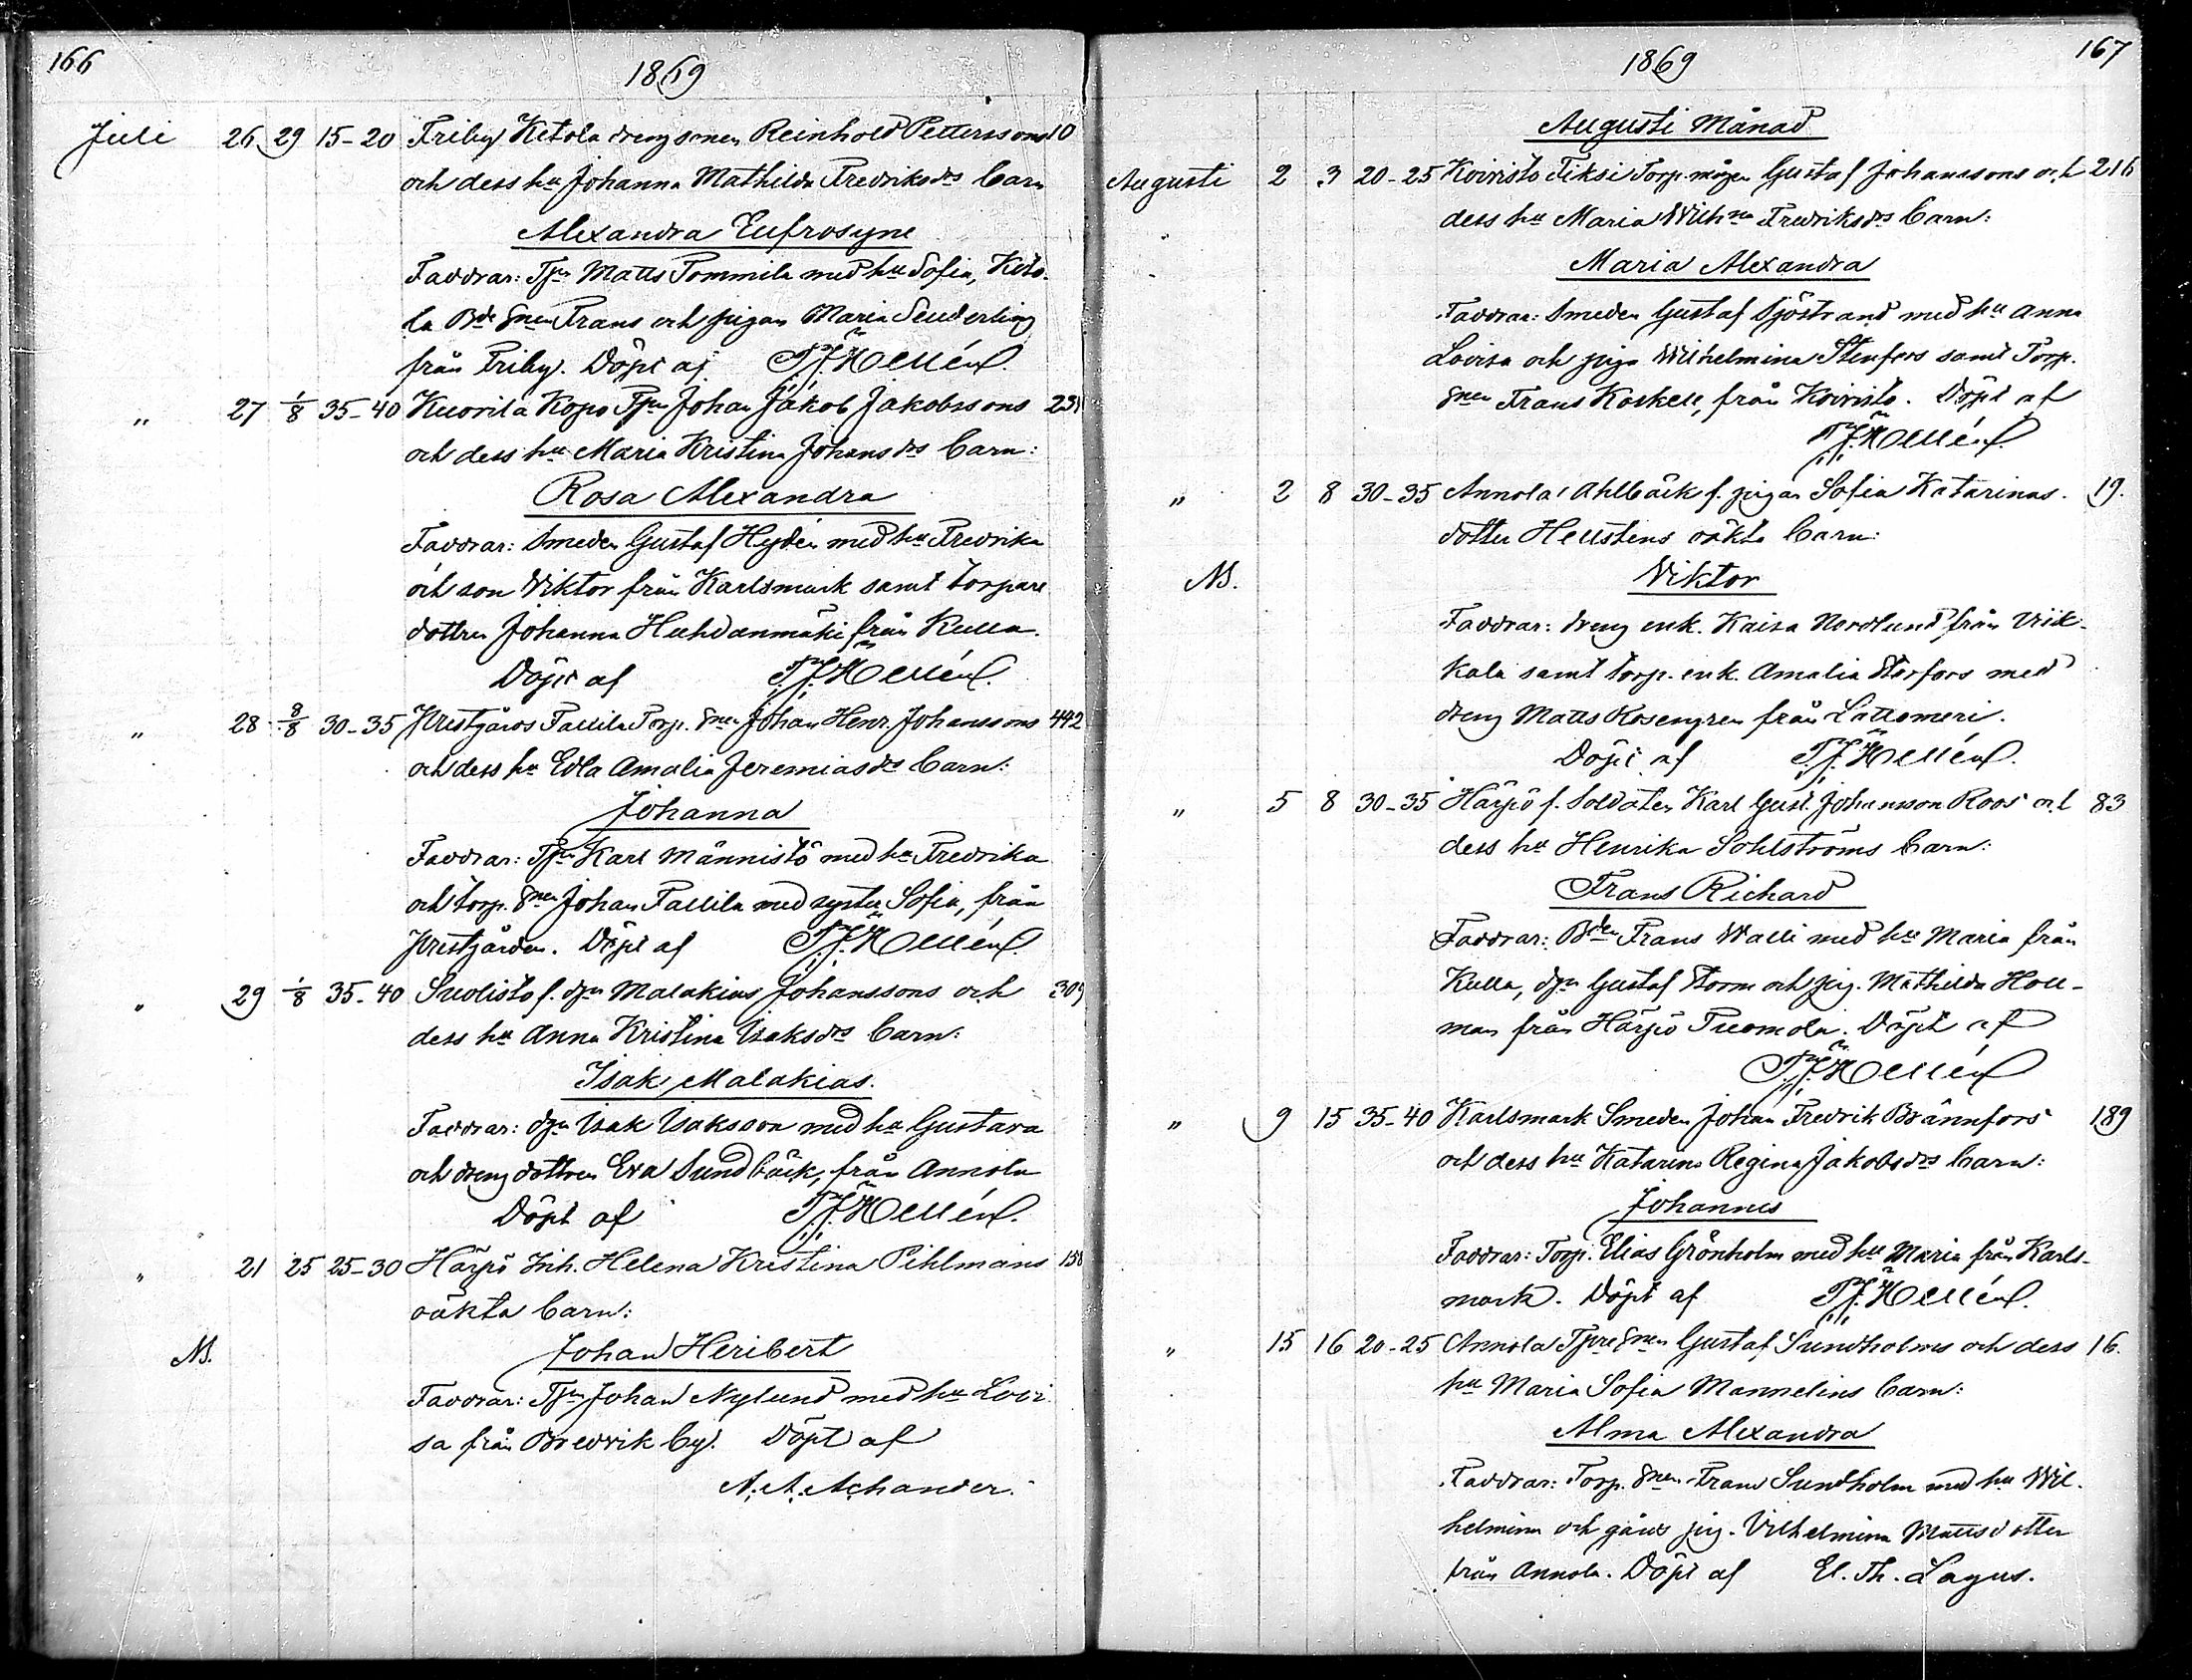 166
1869
Juli 26 29 15-20 Friby Ketola drengsonen Reinhold Petterssons 10
och dess hu Johanna Mathilda Fredriksdrs barn
Alexandra Eufrosyne
Faddrar: Tjn Matts Tommila med hu Sofia, Keto-
la Bde snen Frans och pigan Maria Seuderling
från Friby. Döpt af T.J. Hellén.
" 27 1/8 35-40 Kuorila Kopo Tjn Johan Jakob Jakobssons 231
och dess hu Maria Kristina Johansdrs barn:
Rosa Alexandra
Faddrar: Smeden Gustaf Hydén med hu Fredrika
och son Viktor från Karlsmark samt torpare
dottren Johanna Huhdanmäki från Kulla.
Döpt af T.J. Hellén.
" 28 8/8 30-35 Prestgårds Pallila Torp. snen Johan Henr. Johanssons 442
och dess hu Edla Amalia Jeremiasdrs barn:
Johanna
Faddrar: Tjn Karl Männistö med hu Fredrika
och torp. snen Johan Pallila med syster Sofia, från
Prestgården. Döpt af T.J. Hellén.
" 29 1/8 35-40 Suolisto f. djn Malakias Johanssons och 309
dess hu Anna Kristina Isaksdrs barn:
Isak Malakias.
Faddrar: djn Isak Isaksson med hu Gustava
och drengdottren Eva Sundbäck, från Annola
Döpt af T.J. Hellén.
" 21 25 25-30 Härpö Inh. Helena Kristina Pihlmans 158
oäkta barn:
NB. Johan Heribert
Faddrar: Tjn Johan Nylund med hu Lovi-
sa från Bredvik by. Döpt af
A. A. Achander.
167
1869
Augusti Månad
Augusti 2 3 20-25 Koivisto Fiksi Torp. mågen Gustaf Johanssons och 216
dess hu Maria Wilhna Fredriksdrs barn:
Maria Alexandra
Faddrar: Smeden Gustaf Sjöstrand med hu Anna
Lovisa och piga Wilhelmina Stenfors samt Torp.
snen Frans Koskell, från Koivisto. Döpt af
T.J. Hellén.
" 2 8 30-35 Annola Ahlbäck f. pigan Sofia Katarinas- 19.
dotter Hellstens oäkta barn:
NB. Viktor
Faddrar: dreng enk. Kaisa Nordlund från Viik-
kala samt torp. enk. Amalia Storfors med
dreng Matts Rosengren från Lattomeri.
Döpt af T.J. Hellén.
" 5 8 30-35 Härpö f. Soldaten Karl Gust. Johansson Roos och 83
dess hu Henrika Sohlströms barn:
Frans Richard
Faddrar: Bden Frans Walli med hu Maria från
Kulla, djn Gustaf Storm och pig. Mathilda Holl-
man från Härpö Tuomola. Döpt af
T.J. Hellén
" 9 15 35-40 Karlsmark Smeden Johan Fredrik Brännfors 189
och dess hu Katarina Regina Jakobsdrs barn:
Johannes
Faddrar: Torp. Elias Grönholm med hu Maria från Karls-
mark. Döpt af T.J. Hellén.
" 15 16 20-25 Annola Tjpre snen Gustaf Sundholms och dess 16.
hu Maria Sofia Mannelins barn:
Alma Alexandra
Faddrar: Torp. snen Frans Sundholm med hu Wil-
helmina och gårds pig. Vilhelmina Mattsdotter
från Annola. Döpt af El. Th. Lagus.